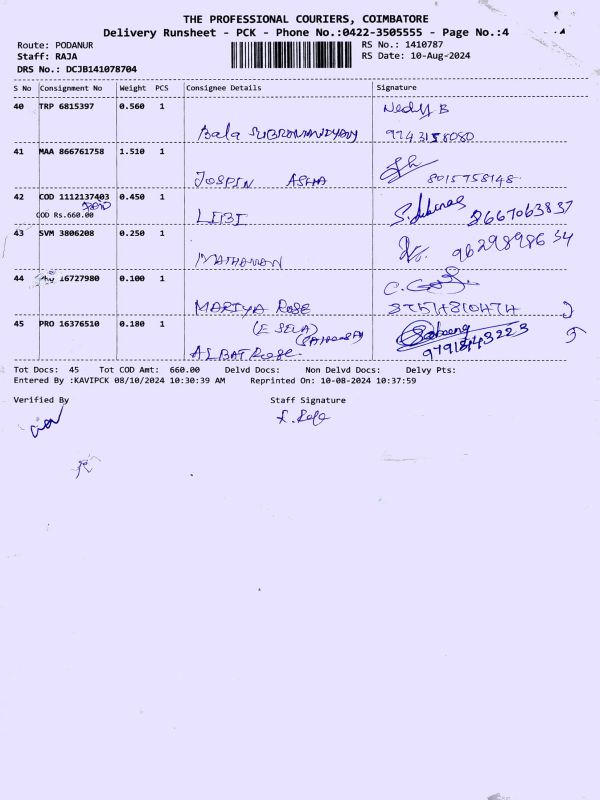 THE PROFESSIONAL COURIERS, COIMBATORE
Delivery Runsheet - PCK - Phone No.:0422-3505555 - Page No.:4
Route: PODANUR
Staff: RAJA
DRS No.: DCJB141078704
RS No.: 1410787
RS Date: 10-Aug-2024
S No Consignment No Weight PCS Consignee Details Signature
40 TRP 6815397 0.560 1
Bala 9743158080
41 MAA 866761758 1.510 1
JOSPIN ASHA 8015758148
42 COD 1112137403 0.450 1
COD Rs.660.00
LIBI
43 SVM 3806208 0.250 1
MATHAVAN
44 16727980 0.100 1
MARIYA ROSE
45 PRO 16376510 0.180 1
ALBAT Rose
Tot Docs: 45 Tot COD Amt: 660.00 Delvd Docs: Non Delvd Docs: Delvy Pts:
Entered By :KAVIPCK 08/10/2024 10:30:39 AM Reprinted On: 10-08-2024 10:37:59
Verified By Staff Signature